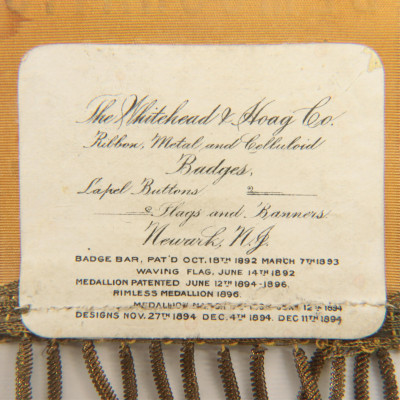 The Whitehead & Hoag Co.
Ribbon, Metal and Celluloid
Badges,
Lapel Buttons
Flags and Banners
Newark, N.J.
BADGE BAR, PAT'D OCT. 18TH 1892 MARCH 7TH 1893
WAVING FLAG, JUNE 14TH 1892
MEDALLION PATENTED JUNE 12TH 1894-1896.
RIMLESS MEDALLION 1896.
MEDALLION 12TH 1894
DESIGNS NOV. 27TH 1894 DEC. 4TH 1894. DEC 11TH 1894